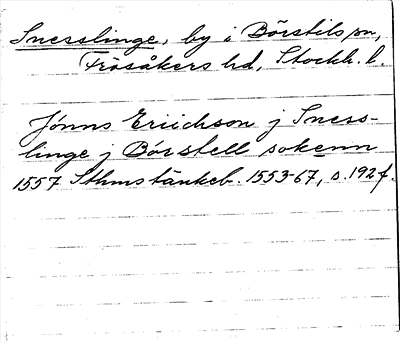 Snesslinge, by i Börstils sn,
Frösåkers hd, Stockh. l.
Jönns Eriichson j Sness-
linge j Börstell sokenn
1557 Sthms tänkeb. 1553-67, s. 192 f.